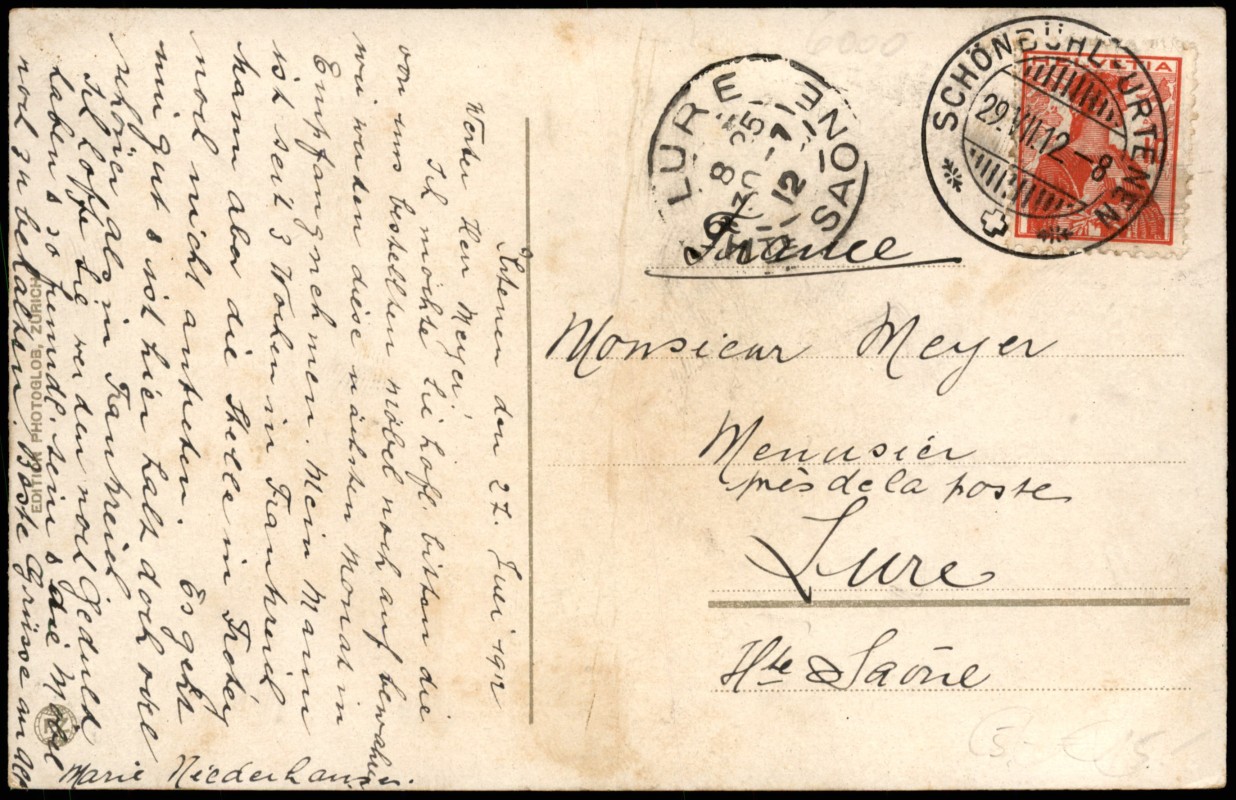 Urtenen den 27. Juli 1912
Werter Herr Meyer!
Ich möchte Sie höfl. bitten die
von uns bestellten Möbel noch auf bewahren
wir werden diese nächsten Monat in
Empfang nehmen. Mein Mann
ist seit 3 Wochen in Frankreich
kann aber die Stelle in Frotey
noch nicht antreten. Es geht
mir gut s ist hier halt doch viel
schöner als in Frankreich
Ich hoffe Sie werden noch Geduld
haben s so freundl. sein s die Möbel
noch zu behalten. Beste Grüsse an Alle
Marie Niederhauser.
EDITION PHOTOGLOB, ZÜRICH
6000
LURE
Hte SAONE
8 25
30 -7
12
SCHÖNBÜHL-URTENEN
29.VII.12-8
HELVETIA
France
Monsieur Meyer
Menusier
près de la poste
Lure
Hte Saône